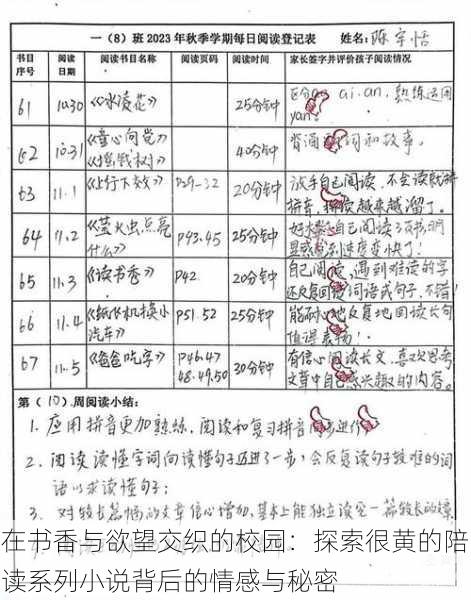 一（8）班 2023 年秋季学期每日阅读登记表 姓名：陈宇恬
书目序号 阅读日期 阅读书目名称 阅读页码 阅读时间 家长签字并评价孩子阅读情况
61 10.30 《水凌花》 25分钟 区分 ai.an，熟练运用 yan。
62 10.31 《童心向党》 40分钟 背诵 词和故事。
63 11.1 《上行下效》 P29-32 20分钟 试手自己阅读，不会读就拼拼音，拼读越来越溜了。
64 11.2 《萤火虫点亮什么》 P43.45 25分钟 自己阅读了书，明显感 到速度变快了！
65 11.3 《读书香》 P42 20分钟 自己阅读，遇到难读的字还反复回读词语或句子，不错！
66 11.4 《纸飞机换小汽车》 P51.52 25分钟 能耐心地反复地回读长句值得表扬！
67 11.5 《爸爸吃字》 P46.47 48.49.50 30分钟 有信心阅读长文，喜欢思考文章中自己感兴趣的内容。
第（10）周阅读小结：
1. 应用拼音更加熟练，阅读和复习拼音同步进行
2. 阅读读懂字词向读懂句子迈进了一步，会反复读句子较难的词语以求读懂句子；
3. 对较长篇幅的文章信心增加，基本上能独立读完一篇较长的
在书香与欲望交织的校园：探索很黄的陪
读系列小说背后的情感与秘密